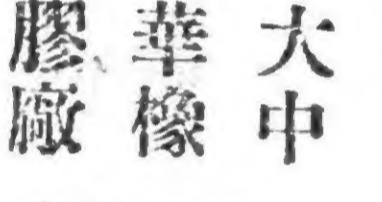 大中
華橡
膠廠